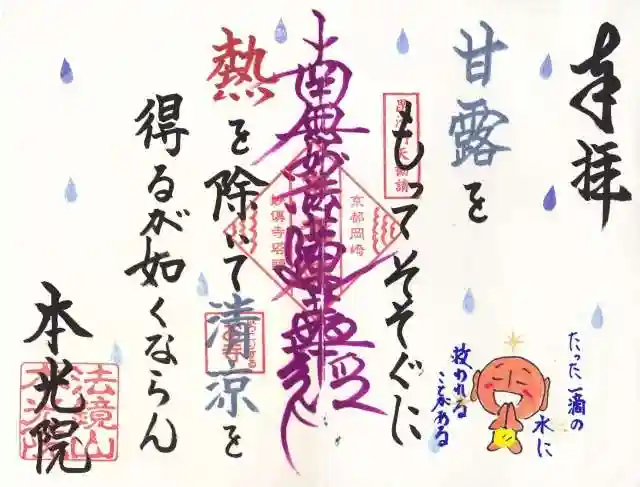 奉拝
甘露を
もってそそぐに
南無妙法蓮華経
熱を除いて清涼を
得るが如くならん
本光院
京都岡崎
妙傳寺塔頭
法鏡山
たった一滴の
水に
救われる
ことがある